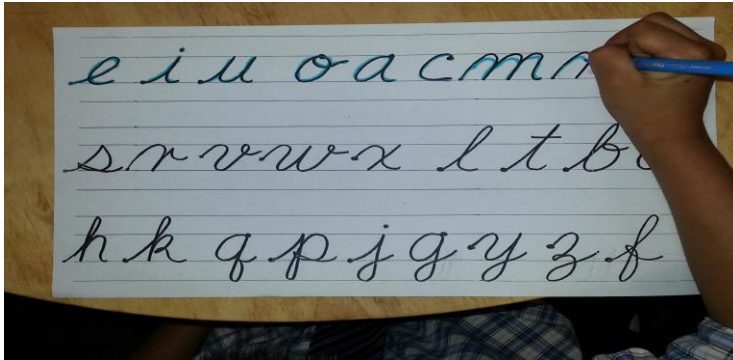 e i u o a c m n
s r v w x l t b
h k q p j g y z f